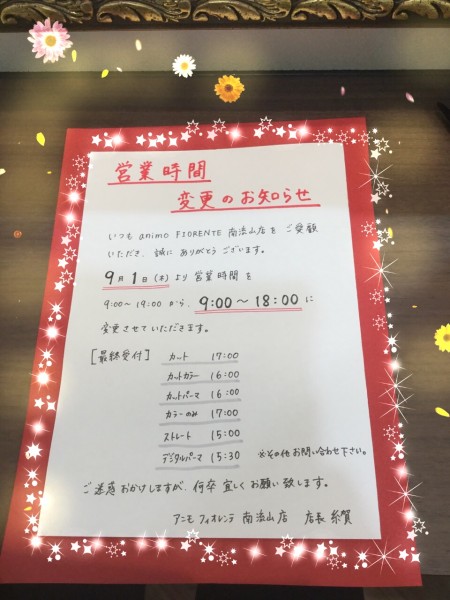 営業時間
変更のお知らせ
いつも animo FIORENTE 南流山店を ご愛顧
いただき、誠に ありがとう ございます。
9月1日(木)より 営業時間を
9:00〜19:00 から、9:00〜18:00 に
変更させていただきます。
[最終受付] カット 17:00
カットカラー 16:00
カットパーマ 16:00
カラーのみ 17:00
ストレート 15:00
デジタルパーマ 15:30 ※その他 お問い合わせ下さい。
ご迷惑 おかけしますが、何卒 宜しく お願い致します。
アニモ フィオレンテ 南流山店 店長 糸賀